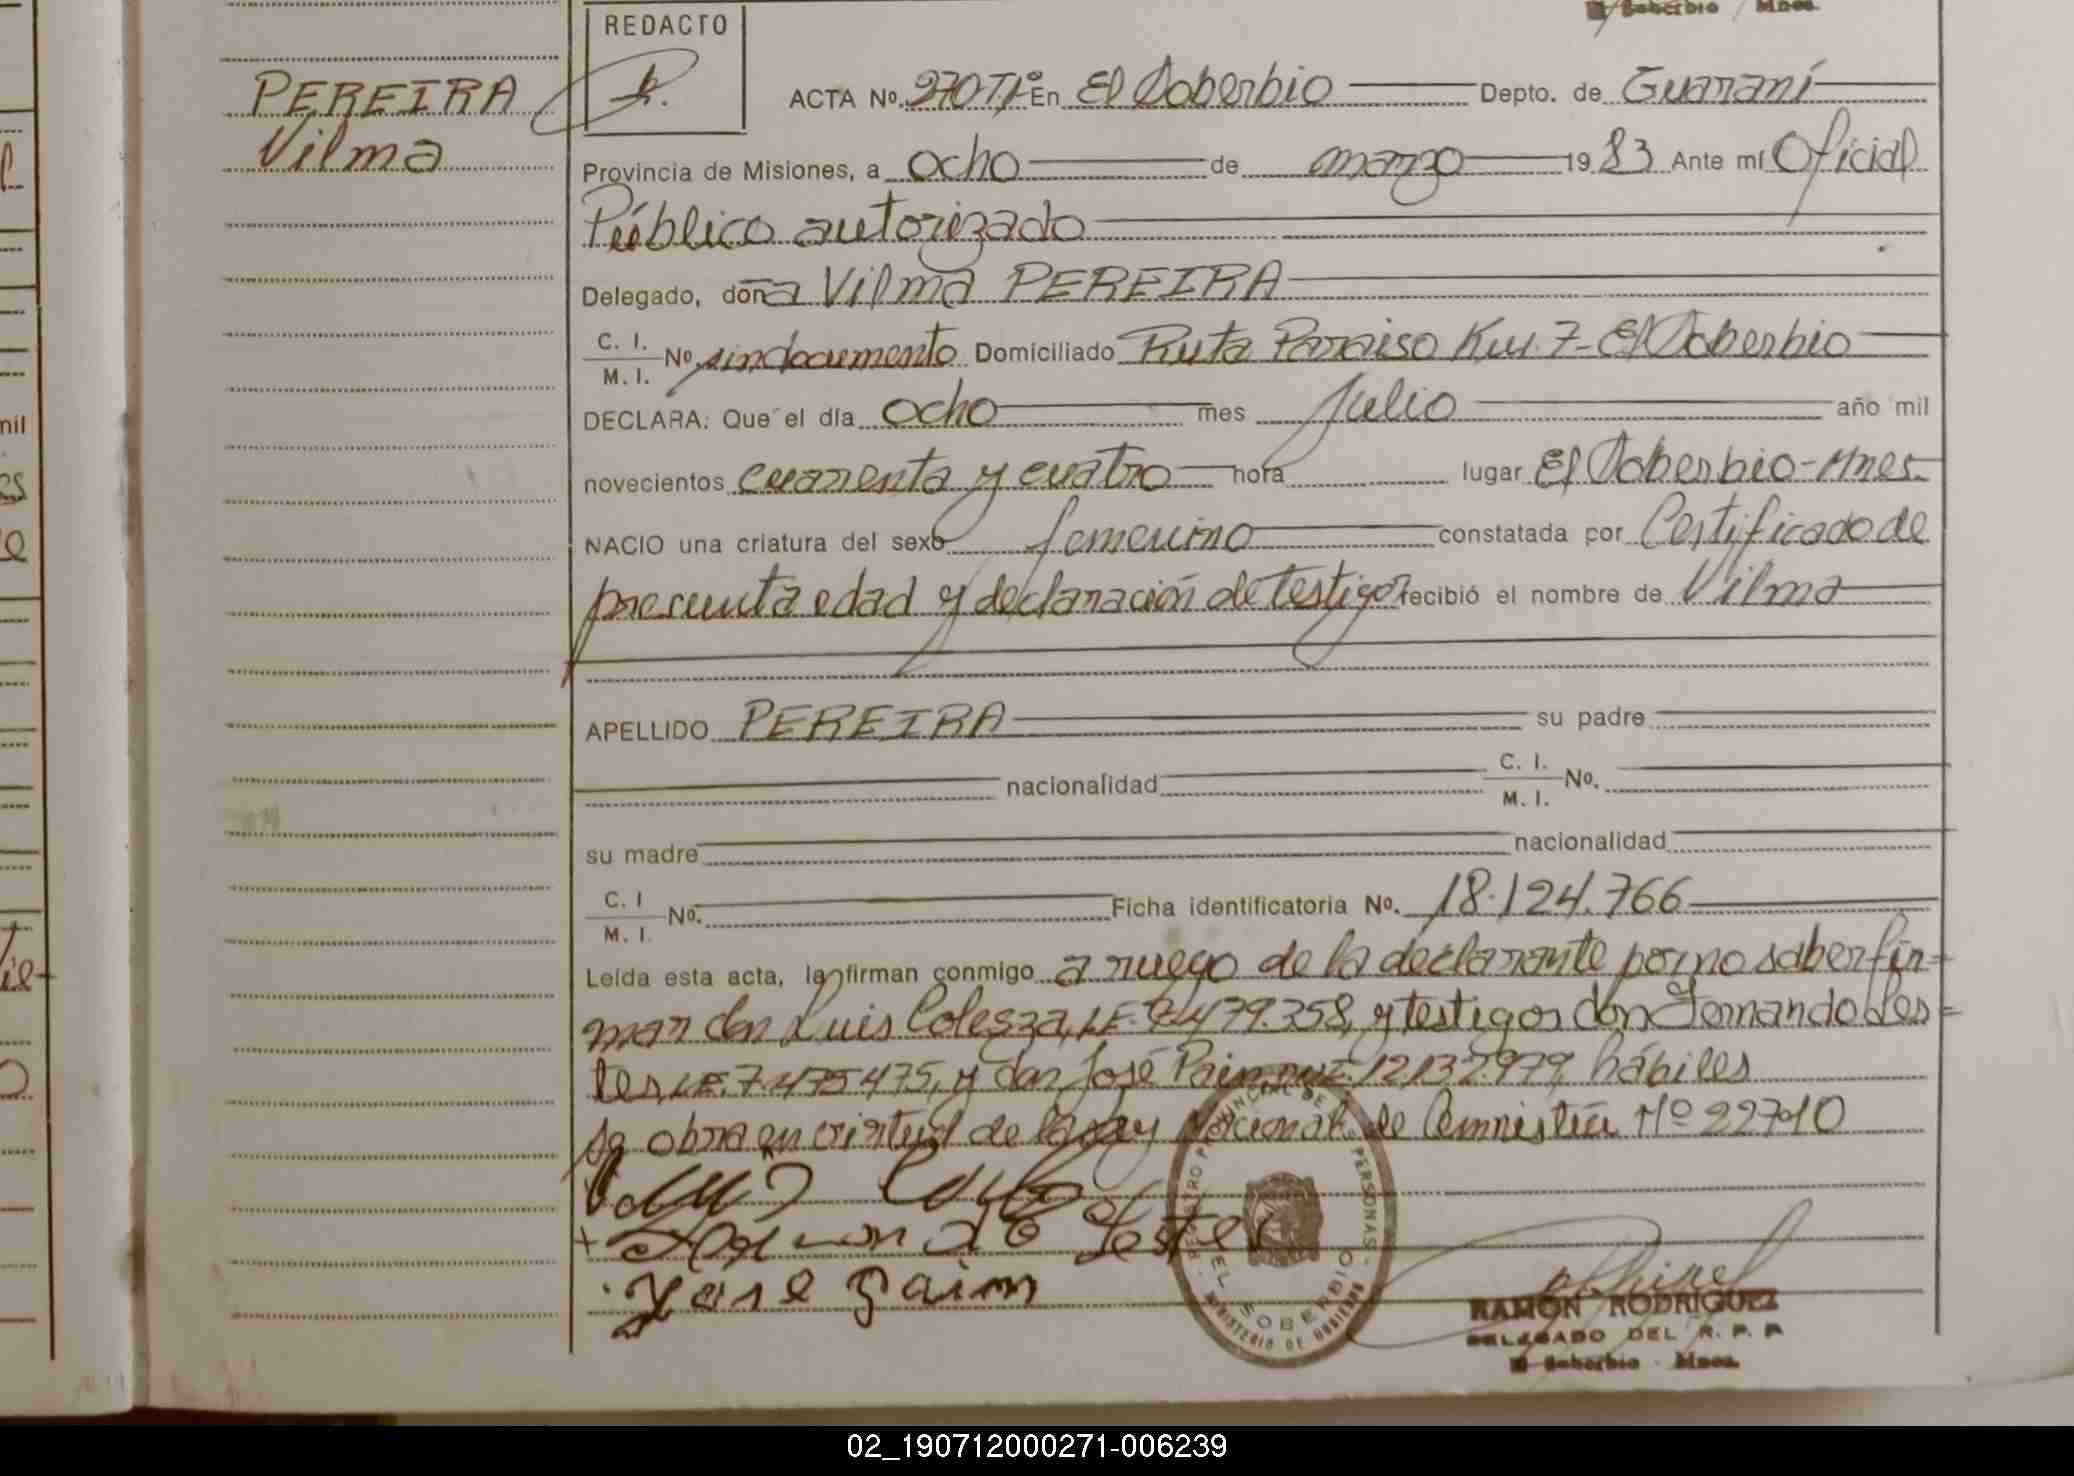 El Soberbio Mnes.
REDACTO
PEREIRA
Vilma
ACTA No. 270 TIº En El Soberbio Depto. de Guaraní
Provincia de Misiones, a ocho de marzo 1983 Ante mí Oficial
Público autorizado
Delegado, doña Vilma PEREIRA
C. I.
M. I. No. sin documento Domiciliado Ruta Paraiso Km. 7- El Soberbio
DECLARA: Que el día ocho mes Julio año mil
novecientos cuarenta y cuatro hora lugar El Soberbio-Mnes.
NACIO una criatura del sexo femenino constatada por Certificado de
presunta edad y declaración de testigos recibió el nombre de Vilma
APELLIDO PEREIRA su padre
nacionalidad C. I.
M. I. No.
su madre nacionalidad
C. I
M. I. No. Ficha identificatoria No. 18.124.766
Leída esta acta, la firman conmigo a ruego de la declarante por no saber fir-
mar don Luis Colesza, LE. 479.358, y testigos don Fernando Les=
tes, LE. 7.475475, y don José Pain, 12132.979, hábiles
se obra en virtud de la Ley Nacional de Amnistía Nº 22740
Fernando Lestes
Jose Pain
REGISTRO PROVINCIAL DE LAS PERSONAS
EL SOBERBIO
MINISTERIO DE GOBIERNO
RAMON RODRIGUEZ
DELEGADO DEL R. P. P
El Soberbio - Mnes.
nil
02_190712000271-006239